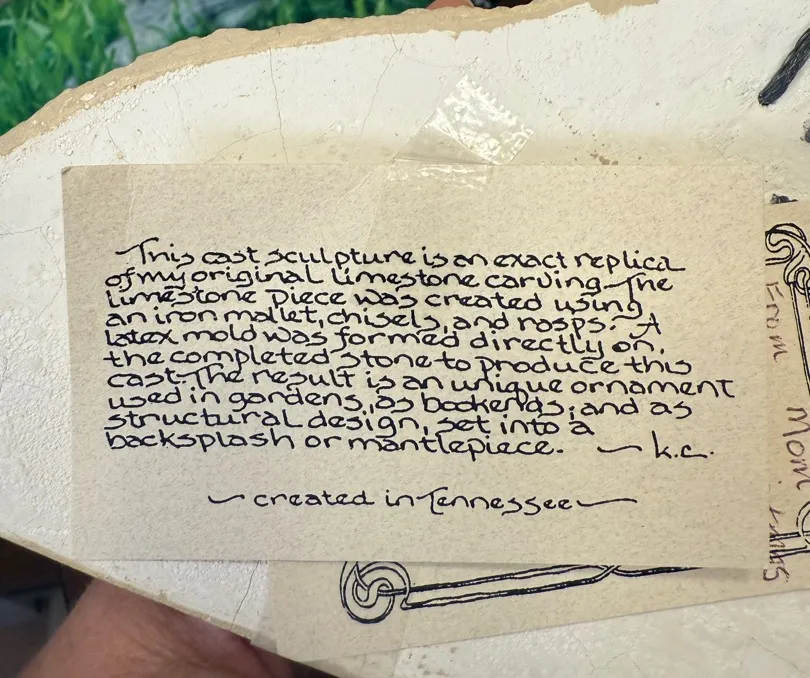 This cast sculpture is an exact replica
of my original limestone carving. The
limestone piece was created using
an iron mallet, chisels, and rasps. A
latex mold was formed directly on,
the completed stone to produce this
cast. The result is an unique ornament
used in gardens, as bookends, and as
structural design, set into a
backsplash or mantlepiece. ~ k.c.
~ created in Tennessee ~
From Mom